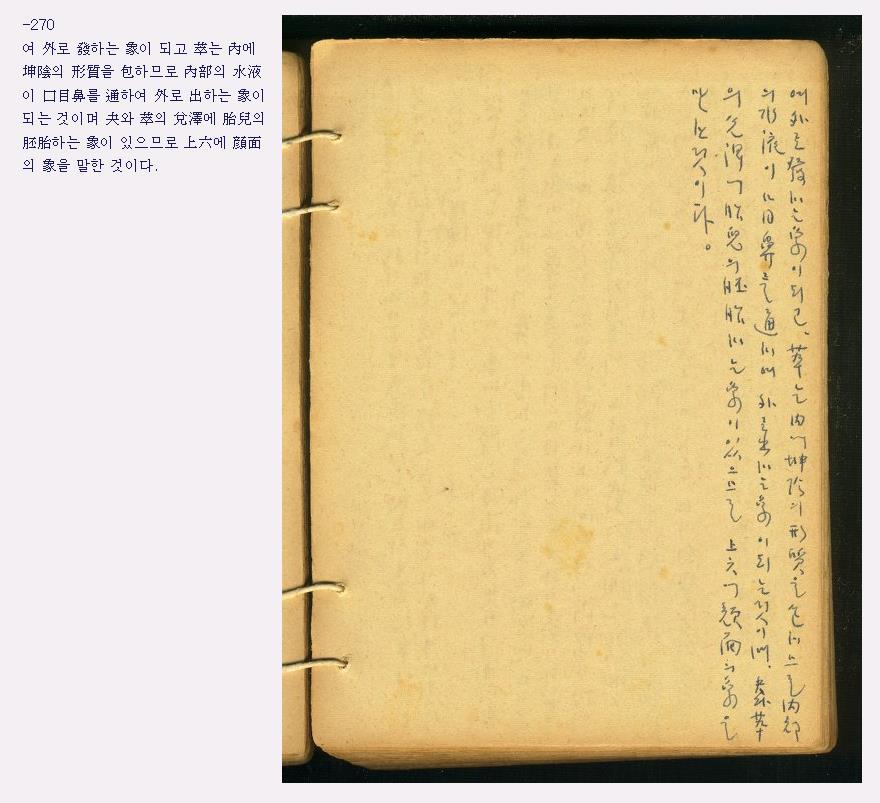 -270
여 外로 發하는 象이 되고 萃는 內에
坤陰의 形質을 包하므로 內部의 水液
이 口目鼻를 通하여 外로 出하는 象이
되는 것이며 夬와 萃의 兌澤에 胎兒의
胚胎하는 象이 있으므로 上六에 顔面
의 象을 말한 것이다.
여 外로 發하는 象이 되고, 萃는 內에 坤陰의 形質을 包하므로 內部
의 水液이 口目鼻를 通하여 外로 出하는 象이 되는 것이며, 夬와 萃
의 兌澤에 胎兒의 胚胎하는 象이 있으므로 上六에 顔面의 象을
말한 것이다。